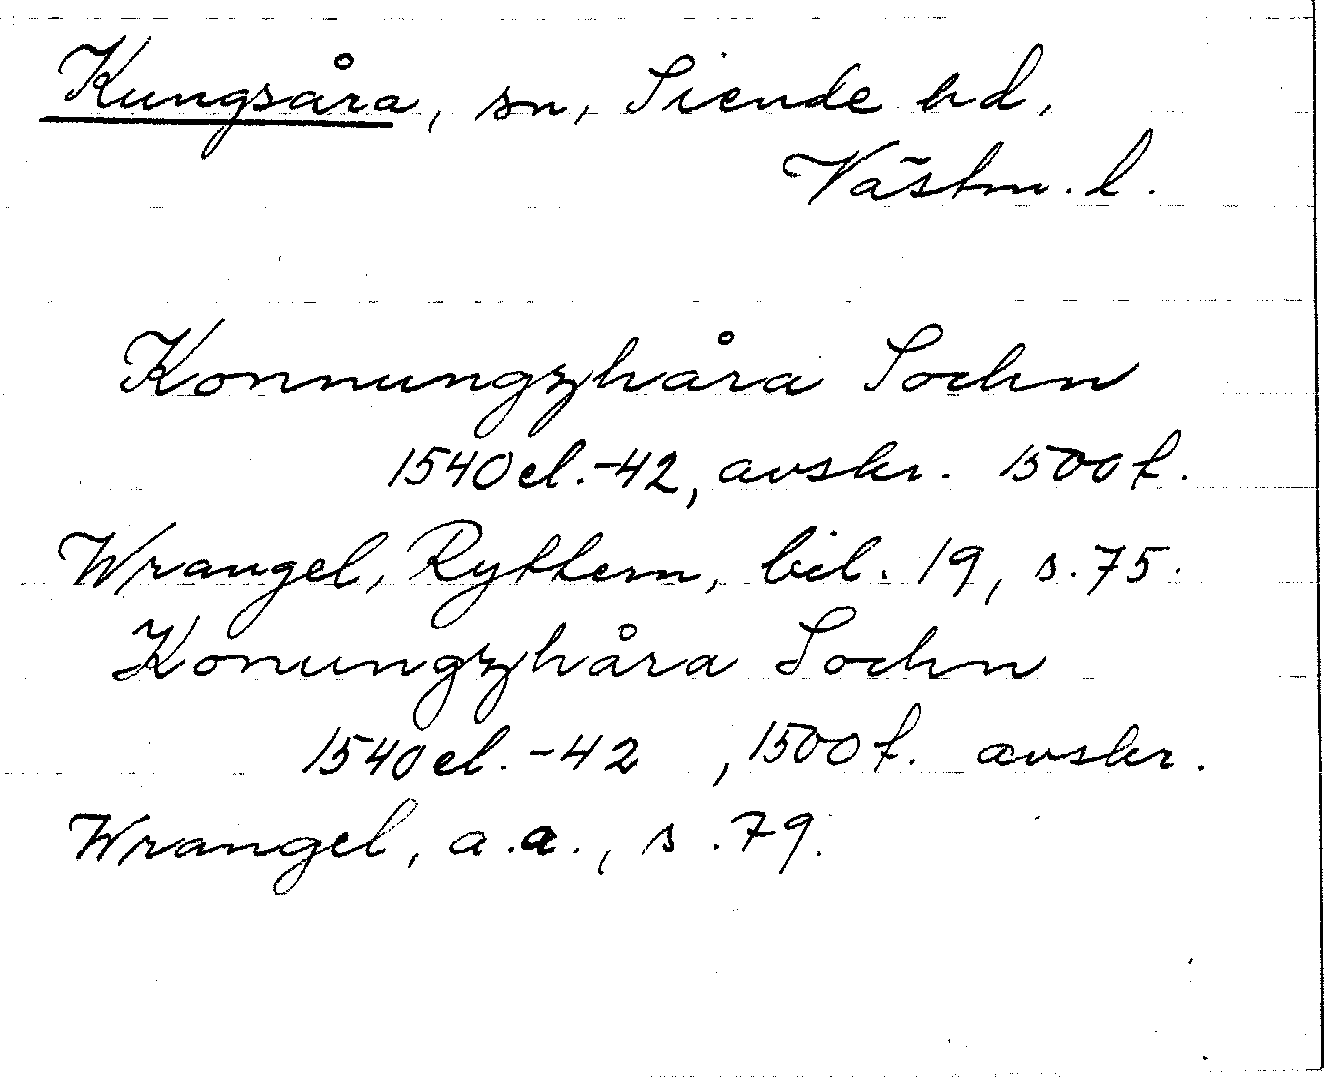 Kungsåra, sn, Siende hd,
Västm. l.
Konnungzhåra Sochn
1540 el. -42, avskr. 1500 t.
Wrangel, Ryttern, bil. 19, s. 75.
Konungzhåra Sochn
1540 el. -42 , 1500 t. avskr.
Wrangel, a.a., s. 79.